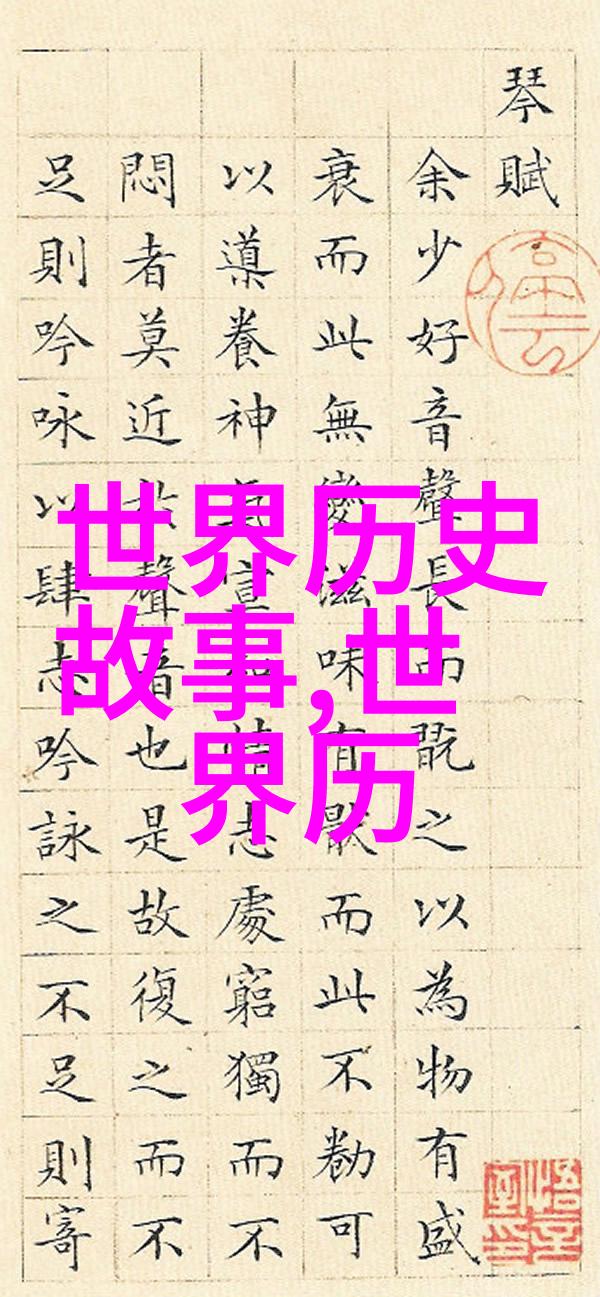 琴賦
余少好音聲長而翫之以為物有盛
衰而此無變滋味有厭而此不勌可
以導養神氣宣和情志處窮獨而不
悶者莫近於聲音也是故復之而不
足則吟咏以肆志吟詠之不足則寄
世界历史
故事,世
界历